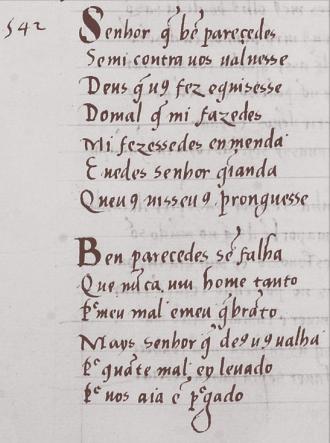 542
Senhor q̃ bẽ pareçedes
Semi contra uos ualuesse
Deus q̃ uꝯ fez equisesse
Domal q̃ mi fazedes
Mi fezessedes enmenda
E uedes senhor q̃ianda
Queuꝯ uisseuꝯ prouguesse
Ben parecedes sẽ falha
Que nũca uiu home tanto
P̃ meu mal emeu q̃brãto
Mays senhor q̃ deꝯ uꝯ ualha
P̃ quãto mal ey leuado
P̃ uos aia ẽ p̃gado